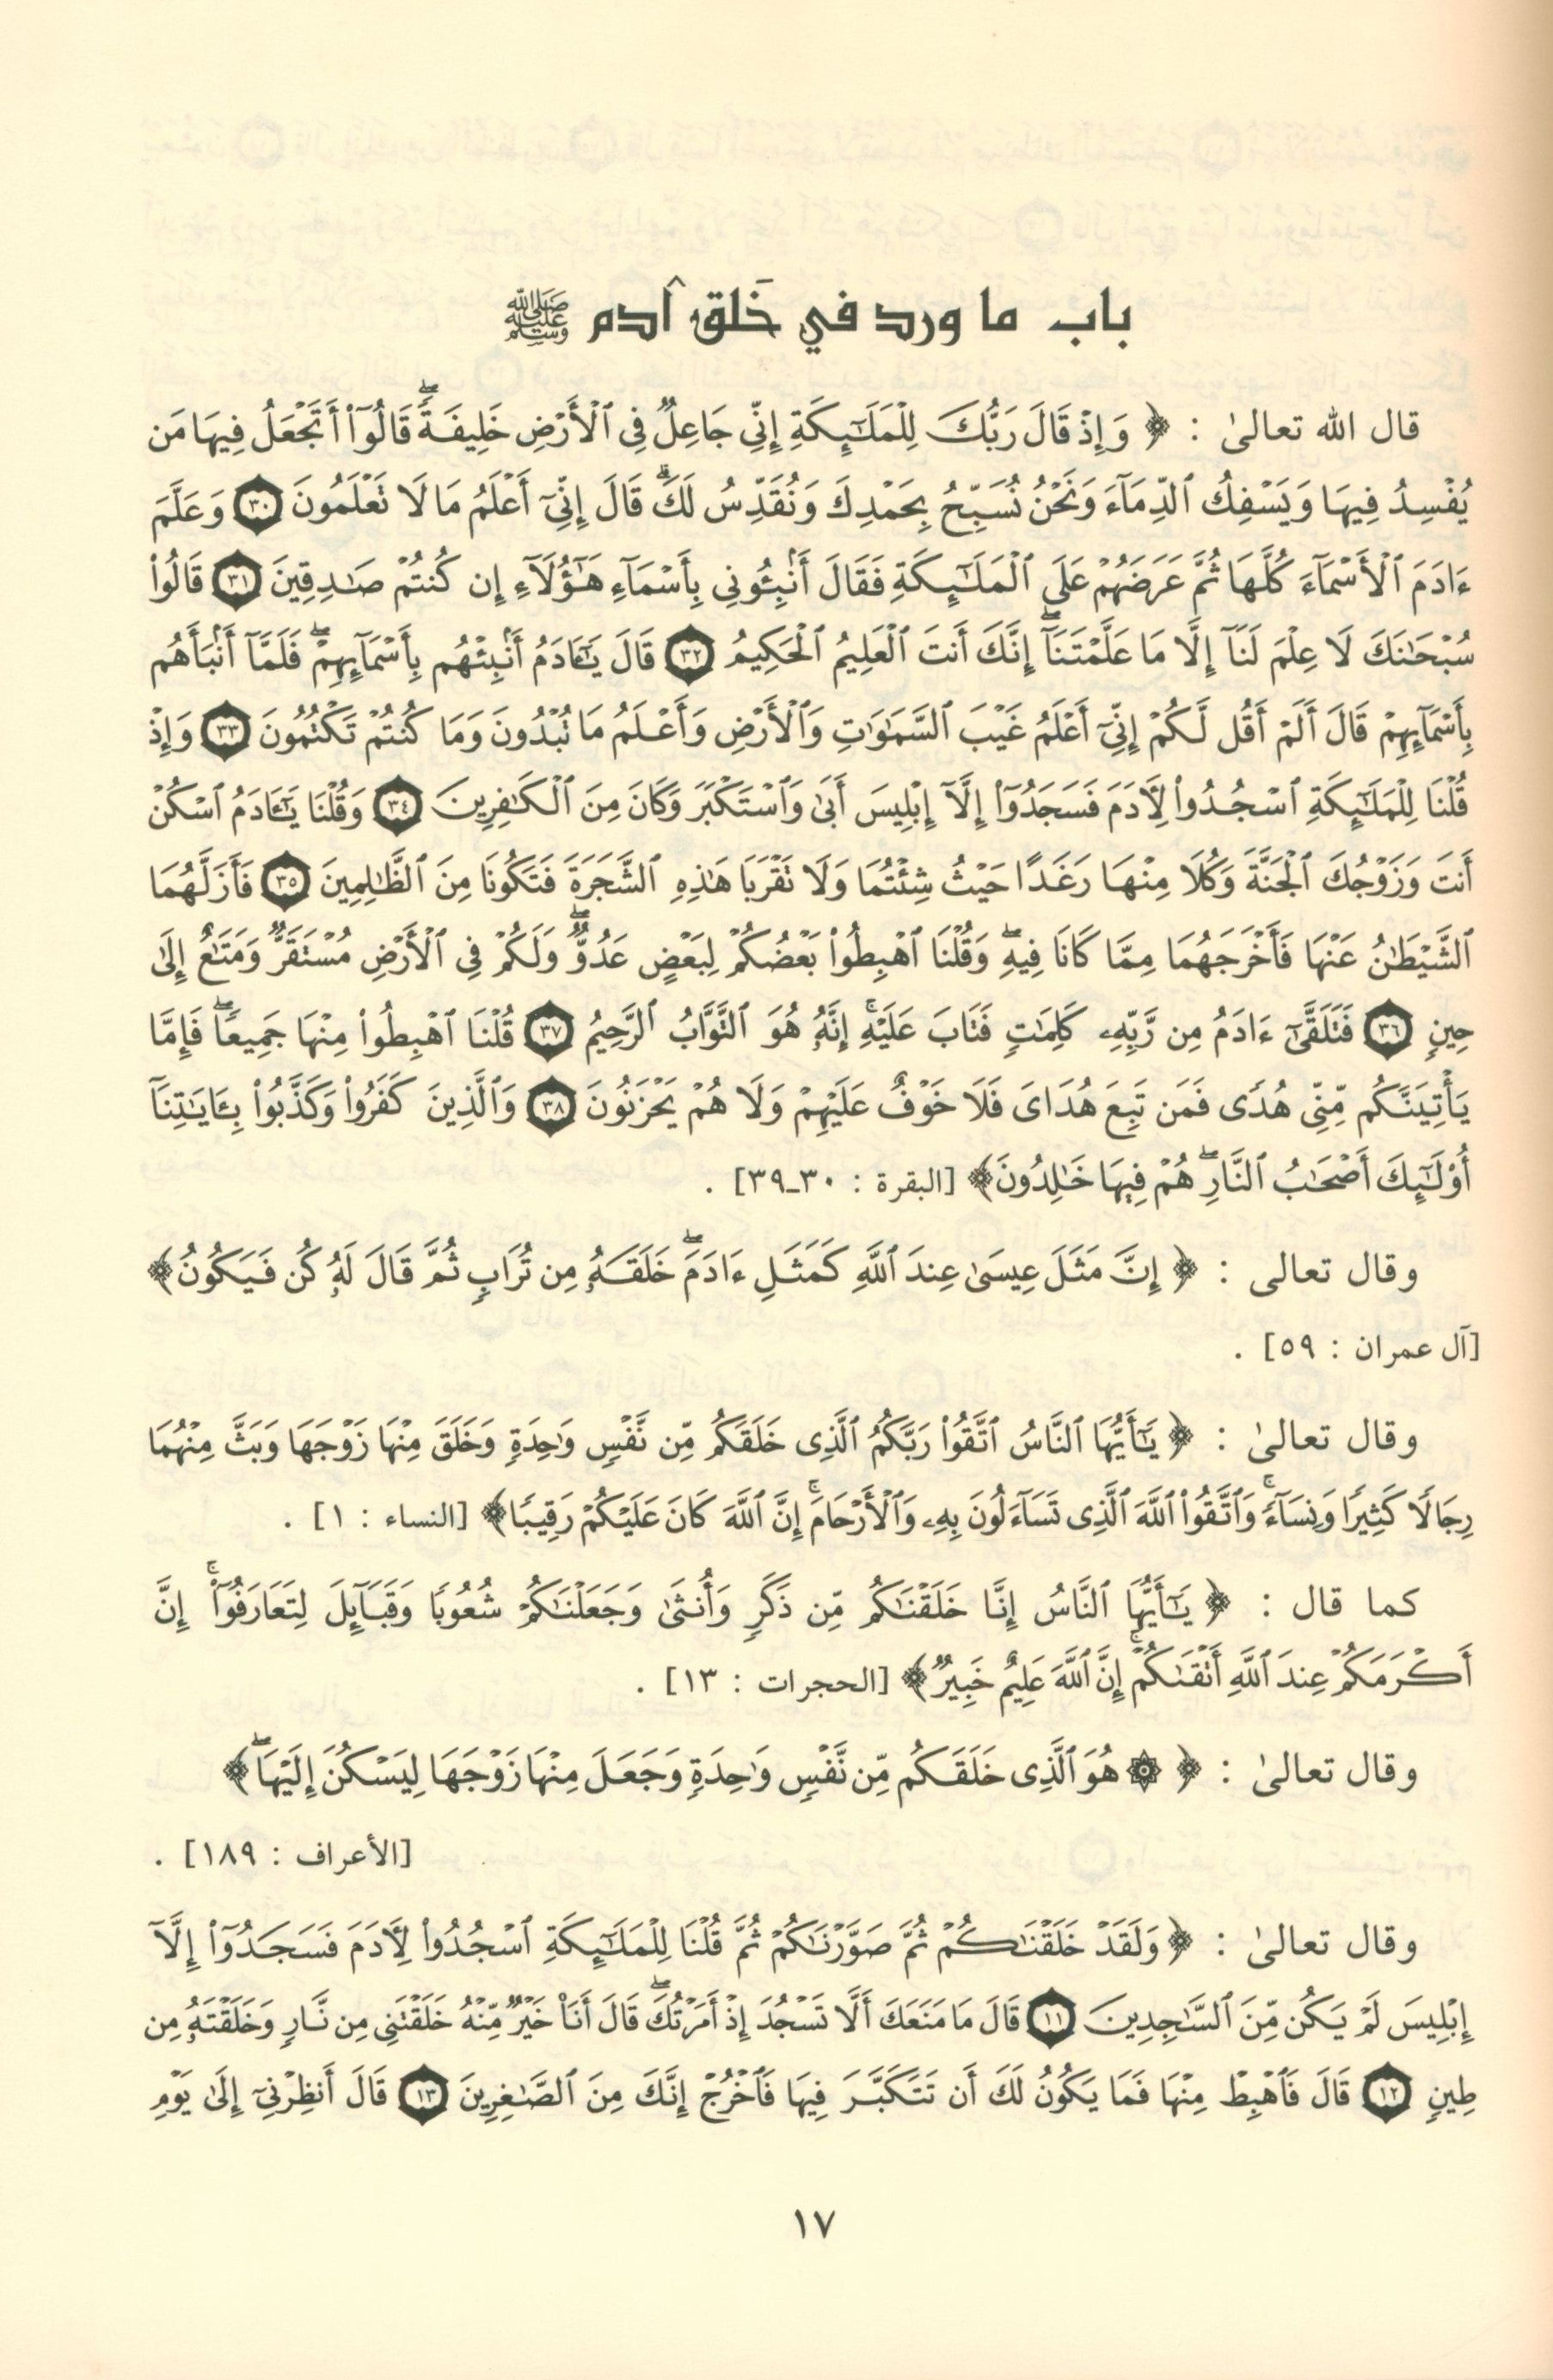 باب ما ورد في خَلق آدم ﷺ
قال الله تعالىٰ : ﴿ وَإِذْ قَالَ رَبُّكَ لِلْمَلَٰٓئِكَةِ إِنِّى جَاعِلٌ فِى ٱلْأَرْضِ خَلِيفَةً ۖ قَالُوٓا۟ أَتَجْعَلُ فِيهَا مَن
يُفْسِدُ فِيهَا وَيَسْفِكُ ٱلدِّمَآءَ وَنَحْنُ نُسَبِّحُ بِحَمْدِكَ وَنُقَدِّسُ لَكَ ۖ قَالَ إِنِّىٓ أَعْلَمُ مَا لَا تَعْلَمُونَ ٣٠ وَعَلَّمَ
ءَادَمَ ٱلْأَسْمَآءَ كُلَّهَا ثُمَّ عَرَضَهُمْ عَلَى ٱلْمَلَٰٓئِكَةِ فَقَالَ أَنۢبِـُٔونِى بِأَسْمَآءِ هَٰٓؤُلَآءِ إِن كُنتُمْ صَٰدِقِينَ ٣١ قَالُوا۟
سُبْحَٰنَكَ لَا عِلْمَ لَنَآ إِلَّا مَا عَلَّمْتَنَآ ۖ إِنَّكَ أَنتَ ٱلْعَلِيمُ ٱلْحَكِيمُ ٣٢ قَالَ يَٰٓـَٔادَمُ أَنۢبِئْهُم بِأَسْمَآئِهِمْ ۖ فَلَمَّآ أَنۢبَأَهُم
بِأَسْمَآئِهِمْ قَالَ أَلَمْ أَقُل لَّكُمْ إِنِّىٓ أَعْلَمُ غَيْبَ ٱلسَّمَٰوَٰتِ وَٱلْأَرْضِ وَأَعْلَمُ مَا تُبْدُونَ وَمَا كُنتُمْ تَكْتُمُونَ ٣٣ وَإِذْ
قُلْنَا لِلْمَلَٰٓئِكَةِ ٱسْجُدُوا۟ لِءَادَمَ فَسَجَدُوٓا۟ إِلَّآ إِبْلِيسَ أَبَىٰ وَٱسْتَكْبَرَ وَكَانَ مِنَ ٱلْكَٰفِرِينَ ٣٤ وَقُلْنَا يَٰٓـَٔادَمُ ٱسْكُنْ
أَنتَ وَزَوْجُكَ ٱلْجَنَّةَ وَكُلَا مِنْهَا رَغَدًا حَيْثُ شِئْتُمَا وَلَا تَقْرَبَا هَٰذِهِ ٱلشَّجَرَةَ فَتَكُونَا مِنَ ٱلظَّٰلِمِينَ ٣٥ فَأَزَلَّهُمَا
ٱلشَّيْطَٰنُ عَنْهَا فَأَخْرَجَهُمَا مِمَّا كَانَا فِيهِ ۖ وَقُلْنَا ٱهْبِطُوا۟ بَعْضُكُمْ لِبَعْضٍ عَدُوٌّ ۖ وَلَكُمْ فِى ٱلْأَرْضِ مُسْتَقَرٌّ وَمَتَٰعٌ إِلَىٰ
حِينٍ ٣٦ فَتَلَقَّىٰٓ ءَادَمُ مِن رَّبِّهِۦ كَلِمَٰتٍ فَتَابَ عَلَيْهِ ۚ إِنَّهُۥ هُوَ ٱلتَّوَّابُ ٱلرَّحِيمُ ٣٧ قُلْنَا ٱهْبِطُوا۟ مِنْهَا جَمِيعًا ۖ فَإِمَّا
يَأْتِيَنَّكُم مِّنِّى هُدًى فَمَن تَبِعَ هُدَاىَ فَلَا خَوْفٌ عَلَيْهِمْ وَلَا هُمْ يَحْزَنُونَ ٣٨ وَٱلَّذِينَ كَفَرُوا۟ وَكَذَّبُوا۟ بِـَٔايَٰتِنَآ
أُو۟لَٰٓئِكَ أَصْحَٰبُ ٱلنَّارِ ۖ هُمْ فِيهَا خَٰلِدُونَ ﴾ [البقرة : ٣٠ـ٣٩] .
وقال تعالى : ﴿ إِنَّ مَثَلَ عِيسَىٰ عِندَ ٱللَّهِ كَمَثَلِ ءَادَمَ ۖ خَلَقَهُۥ مِن تُرَابٍ ثُمَّ قَالَ لَهُۥ كُن فَيَكُونُ ﴾
[آل عمران : ٥٩] .
وقال تعالىٰ : ﴿ يَٰٓأَيُّهَا ٱلنَّاسُ ٱتَّقُوا۟ رَبَّكُمُ ٱلَّذِى خَلَقَكُم مِّن نَّفْسٍ وَٰحِدَةٍ وَخَلَقَ مِنْهَا زَوْجَهَا وَبَثَّ مِنْهُمَا
رِجَالًا كَثِيرًا وَنِسَآءً ۚ وَٱتَّقُوا۟ ٱللَّهَ ٱلَّذِى تَسَآءَلُونَ بِهِۦ وَٱلْأَرْحَامَ ۚ إِنَّ ٱللَّهَ كَانَ عَلَيْكُمْ رَقِيبًا ﴾ [النساء : ١] .
كما قال : ﴿ يَٰٓأَيُّهَا ٱلنَّاسُ إِنَّا خَلَقْنَٰكُم مِّن ذَكَرٍ وَأُنثَىٰ وَجَعَلْنَٰكُمْ شُعُوبًا وَقَبَآئِلَ لِتَعَارَفُوٓا۟ ۚ إِنَّ
أَكْرَمَكُمْ عِندَ ٱللَّهِ أَتْقَىٰكُمْ ۚ إِنَّ ٱللَّهَ عَلِيمٌ خَبِيرٌ ﴾ [الحجرات : ١٣] .
وقال تعالىٰ : ﴿ ۞ هُوَ ٱلَّذِى خَلَقَكُم مِّن نَّفْسٍ وَٰحِدَةٍ وَجَعَلَ مِنْهَا زَوْجَهَا لِيَسْكُنَ إِلَيْهَا ۖ ﴾
[الأعراف : ١٨٩] .
وقال تعالىٰ : ﴿ وَلَقَدْ خَلَقْنَٰكُمْ ثُمَّ صَوَّرْنَٰكُمْ ثُمَّ قُلْنَا لِلْمَلَٰٓئِكَةِ ٱسْجُدُوا۟ لِءَادَمَ فَسَجَدُوٓا۟ إِلَّآ
إِبْلِيسَ لَمْ يَكُن مِّنَ ٱلسَّٰجِدِينَ ١١ قَالَ مَا مَنَعَكَ أَلَّا تَسْجُدَ إِذْ أَمَرْتُكَ ۖ قَالَ أَنَا۠ خَيْرٌ مِّنْهُ خَلَقْتَنِى مِن نَّارٍ وَخَلَقْتَهُۥ مِن
طِينٍ ١٢ قَالَ فَٱهْبِطْ مِنْهَا فَمَا يَكُونُ لَكَ أَن تَتَكَبَّرَ فِيهَا فَٱخْرُجْ إِنَّكَ مِنَ ٱلصَّٰغِرِينَ ١٣ قَالَ أَنظِرْنِىٓ إِلَىٰ يَوْمِ
١٧